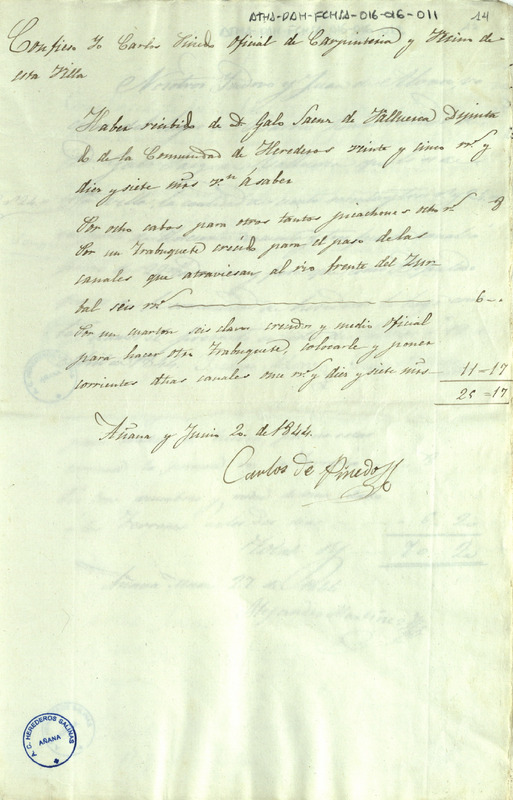 ATHA-DAH-FCHSA-016-016-011
14
Confieso Yo Carlos Pinedo oficial de Carpinteria y Vecino de
esta Villa
Haber recibido de Dn. Galo Saenz de Valluerca Diputa
do de la Comunidad de Herederos veinte y cinco rs. y
diez y siete mrs. vn. á saber
Por ocho cabos para otros tantos picachones ocho rs. 8
Por un trabuquete crecido para el paso de las
canales que atraviesan al rio frente del
bal seis rs. 6-..
Por un cuarton seis clavos crecidos y medio oficial
para hacer otro trabuquete, colocarle y poner
corrientes dhas canales once rs. y diez y siete mrs. 11-17
25=17
Añana y Junio 20. de 1844.
Carlos de Pinedo
A.C. HEREDEROS SALINAS
AÑANA